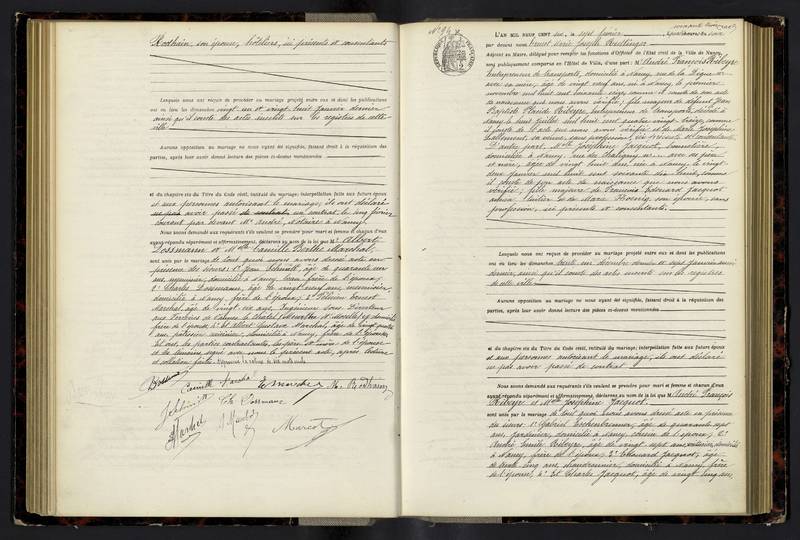 Rodhain, son épouse, hôteliers, ici présents et consentants
Lesquels nous ont requis de procéder au mariage projeté entre eux et dont les publications
ont eu lieu les dimanches vingt un et vingt huit janvier dernier
ainsi qu'il conste des actes inscrits sur les registres de cette
ville
Aucune opposition au mariage ne nous ayant été signifiée, faisant droit à la réquisition des
parties, après leur avoir donné lecture des pièces ci-dessus mentionnées
et du chapitre six du Titre du Code civil, intitulé du mariage; interpellation faite aux futurs époux
et aux personnes autorisant le mariage, ils ont déclaré
avoir passé un contrat, le cinq février
courant par devant Me André, Notaire à Nancy
Nous avons demandé aux requérants s'ils veulent se prendre pour mari et femme et chacun d'eux
ayant répondu séparément et affirmativement, déclarons au nom de la loi que M. Albert
Dossmann et Mlle Camille Berthe Marchal
sont unis par le mariage de tout quoi nous avons dressé acte en
présence des sieurs: 1° Jean Schmitt, âgé de quarante un
ans, menuisier, domicilié à Nancy, beau-frère de l'époux;
2° Charles Dossmann, âgé de vingt neuf ans, menuisier,
domicilié à Nancy, frère de l'époux; 3° Ernest
Marchal âgé de vingt-six ans, Ingénieur Sous-Directeur
aux (Meurthe et Moselle) y domicilié
frère de l'épouse; 4° Et Albert Gustave Marchal, âgé de vingt quatre
ans, pâtissier, domicilié à Nancy, frère de l'épouse
Et ont, les parties contractantes, les père et mère de l'épouse
et les témoins signé avec nous le présent acte, après lecture
et collation faite.
Dossmann Camille Marchal E. Marchal M. Rodhain
J. Schmitt Ch. Dossmann
Marchal A. Marchal Marcot
N° 94
L'AN MIL NEUF CENT six, le sept février
par devant nous Ernest Marie Joseph
Adjoint au Maire, délégué pour remplir les fonctions d'Officier de l'Etat civil de la Ville de Nancy,
sont publiquement comparus en l'Hôtel de Ville, d'une part: M. André François Ribeyre
Entrepreneur de transports, domicilié à Nancy, rue de la Digue
avec sa mère, âgé de vingt neuf ans, né à Nancy, le premier
novembre mil huit cent soixante seize comme il conste de son acte
de naissance que nous avons vérifié; fils majeur de défunt Jean
Baptiste Ribeyre, entrepreneur de transports, décédé à
Nancy le huit juillet mil huit cent quatre vingt treize, comme
il conste de l'acte que nous avons vérifié et de Marie Joséphine
sa veuve, sans profession, ici présente et consentante
D'autre part, Mlle Joséphine Jacquot,
domiciliée à Nancy, rue de avec ses père
et mère, âgée de vingt huit ans, née à Nancy le vingt
deux janvier mil huit cent soixante dix huit, comme
il conste de son acte de naissance que nous avons
vérifié; fille majeure de François Edouard Jacquot
et de Marie son épouse, sans
profession, ici présents et consentants.
Lesquels nous ont requis de procéder au mariage projeté entre eux et dont les publications
ont eu lieu les dimanches trente un décembre dernier et sept janvier aussi
dernier, ainsi qu'il conste des actes inscrits sur les registres
de cette ville
Aucune opposition au mariage ne nous ayant été signifiée, faisant droit à la réquisition des
parties, après leur avoir donné lecture des pièces ci-dessus mentionnées
et du chapitre six du Titre du Code civil, intitulé du mariage; interpellation faite aux futurs époux
et aux personnes autorisant le mariage, ils ont déclaré
ne pas avoir passé de contrat
Nous avons demandé aux requérants s'ils veulent se prendre pour mari et femme et chacun d'eux
ayant répondu séparément et affirmativement, déclarons au nom de la loi que M. André François
Ribeyre et Mlle Joséphine Jacquot
sont unis par le mariage de tout quoi nous avons dressé acte en présence
des sieurs: 1° Gabriel âgé de quarante sept
ans, jardinier, domicilié à Nancy, cousin de l'époux; 2°
André Ribeyre, âgé de vingt-sept ans, domicilié
à Nancy, frère de l'époux; 3° Edouard Jacquot, âgé
de trente cinq ans, chaudronnier, domicilié à Nancy, frère
de l'épouse; 4° Et Charles Jacquot, âgé de vingt cinq ans,